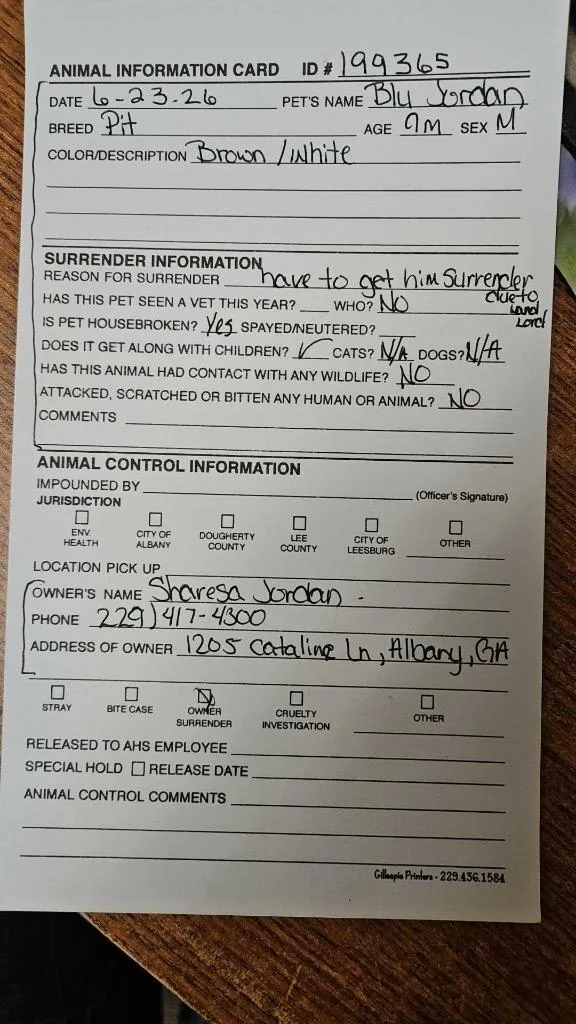 ANIMAL INFORMATION CARD ID # 199365
DATE 6-23-26 PET'S NAME Blu Jordan
BREED Pit AGE 9M SEX M
COLOR/DESCRIPTION Brown / White
SURRENDER INFORMATION
REASON FOR SURRENDER have to get him Surrender
due to
Land
Lord
HAS THIS PET SEEN A VET THIS YEAR? WHO? NO
IS PET HOUSEBROKEN? Yes SPAYED/NEUTERED?
DOES IT GET ALONG WITH CHILDREN? ✓ CATS? N/A DOGS? N/A
HAS THIS ANIMAL HAD CONTACT WITH ANY WILDLIFE? NO
ATTACKED, SCRATCHED OR BITTEN ANY HUMAN OR ANIMAL? NO
COMMENTS
ANIMAL CONTROL INFORMATION
IMPOUNDED BY (Officer's Signature)
JURISDICTION
☐ ENV. HEALTH ☐ CITY OF ALBANY ☐ DOUGHERTY COUNTY ☐ LEE COUNTY ☐ CITY OF LEESBURG ☐ OTHER
LOCATION PICK UP
OWNER'S NAME Sharesa Jordan
PHONE 229) 417-4300
ADDRESS OF OWNER 1205 Cataline Ln, Albany, GA
☐ STRAY ☐ BITE CASE ☒ OWNER SURRENDER ☐ CRUELTY INVESTIGATION ☐ OTHER
RELEASED TO AHS EMPLOYEE
SPECIAL HOLD ☐ RELEASE DATE
ANIMAL CONTROL COMMENTS
Gillespie Printers - 229.436.1584